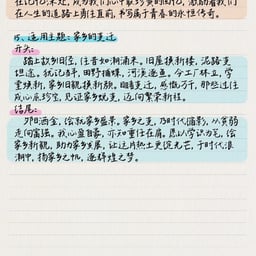 在记忆深处,成为我们心中最珍贵的回忆,激励着我们
在人生的道路上勇往直前,书写属于青春的永恒传奇。
15、适用主题:家乡的变迁
开头:
踏上故乡旧径,往昔如潮涌来。旧屋换新楼,泥路变
坦途。犹记儿时,田野播蝶,河溪逐鱼。今工厂林立,学
堂焕新,家乡旧貌换新颜。瞧着变迁,感慨万千,那些过往
成心底珍宝,见证家乡蜕变,迈向繁荣新程。
结尾:
夕阳洒金,绘就家乡盛景。家乡之变,乃时代缩影,从贫弱
走向富强。我心盈自豪,亦知重任在肩。愿以学识为笔,绘
家乡新貌,助力家乡发展,让这片热土更绽光芒,于时代浪
潮中,扬家乡之帆,逐辉煌之梦。